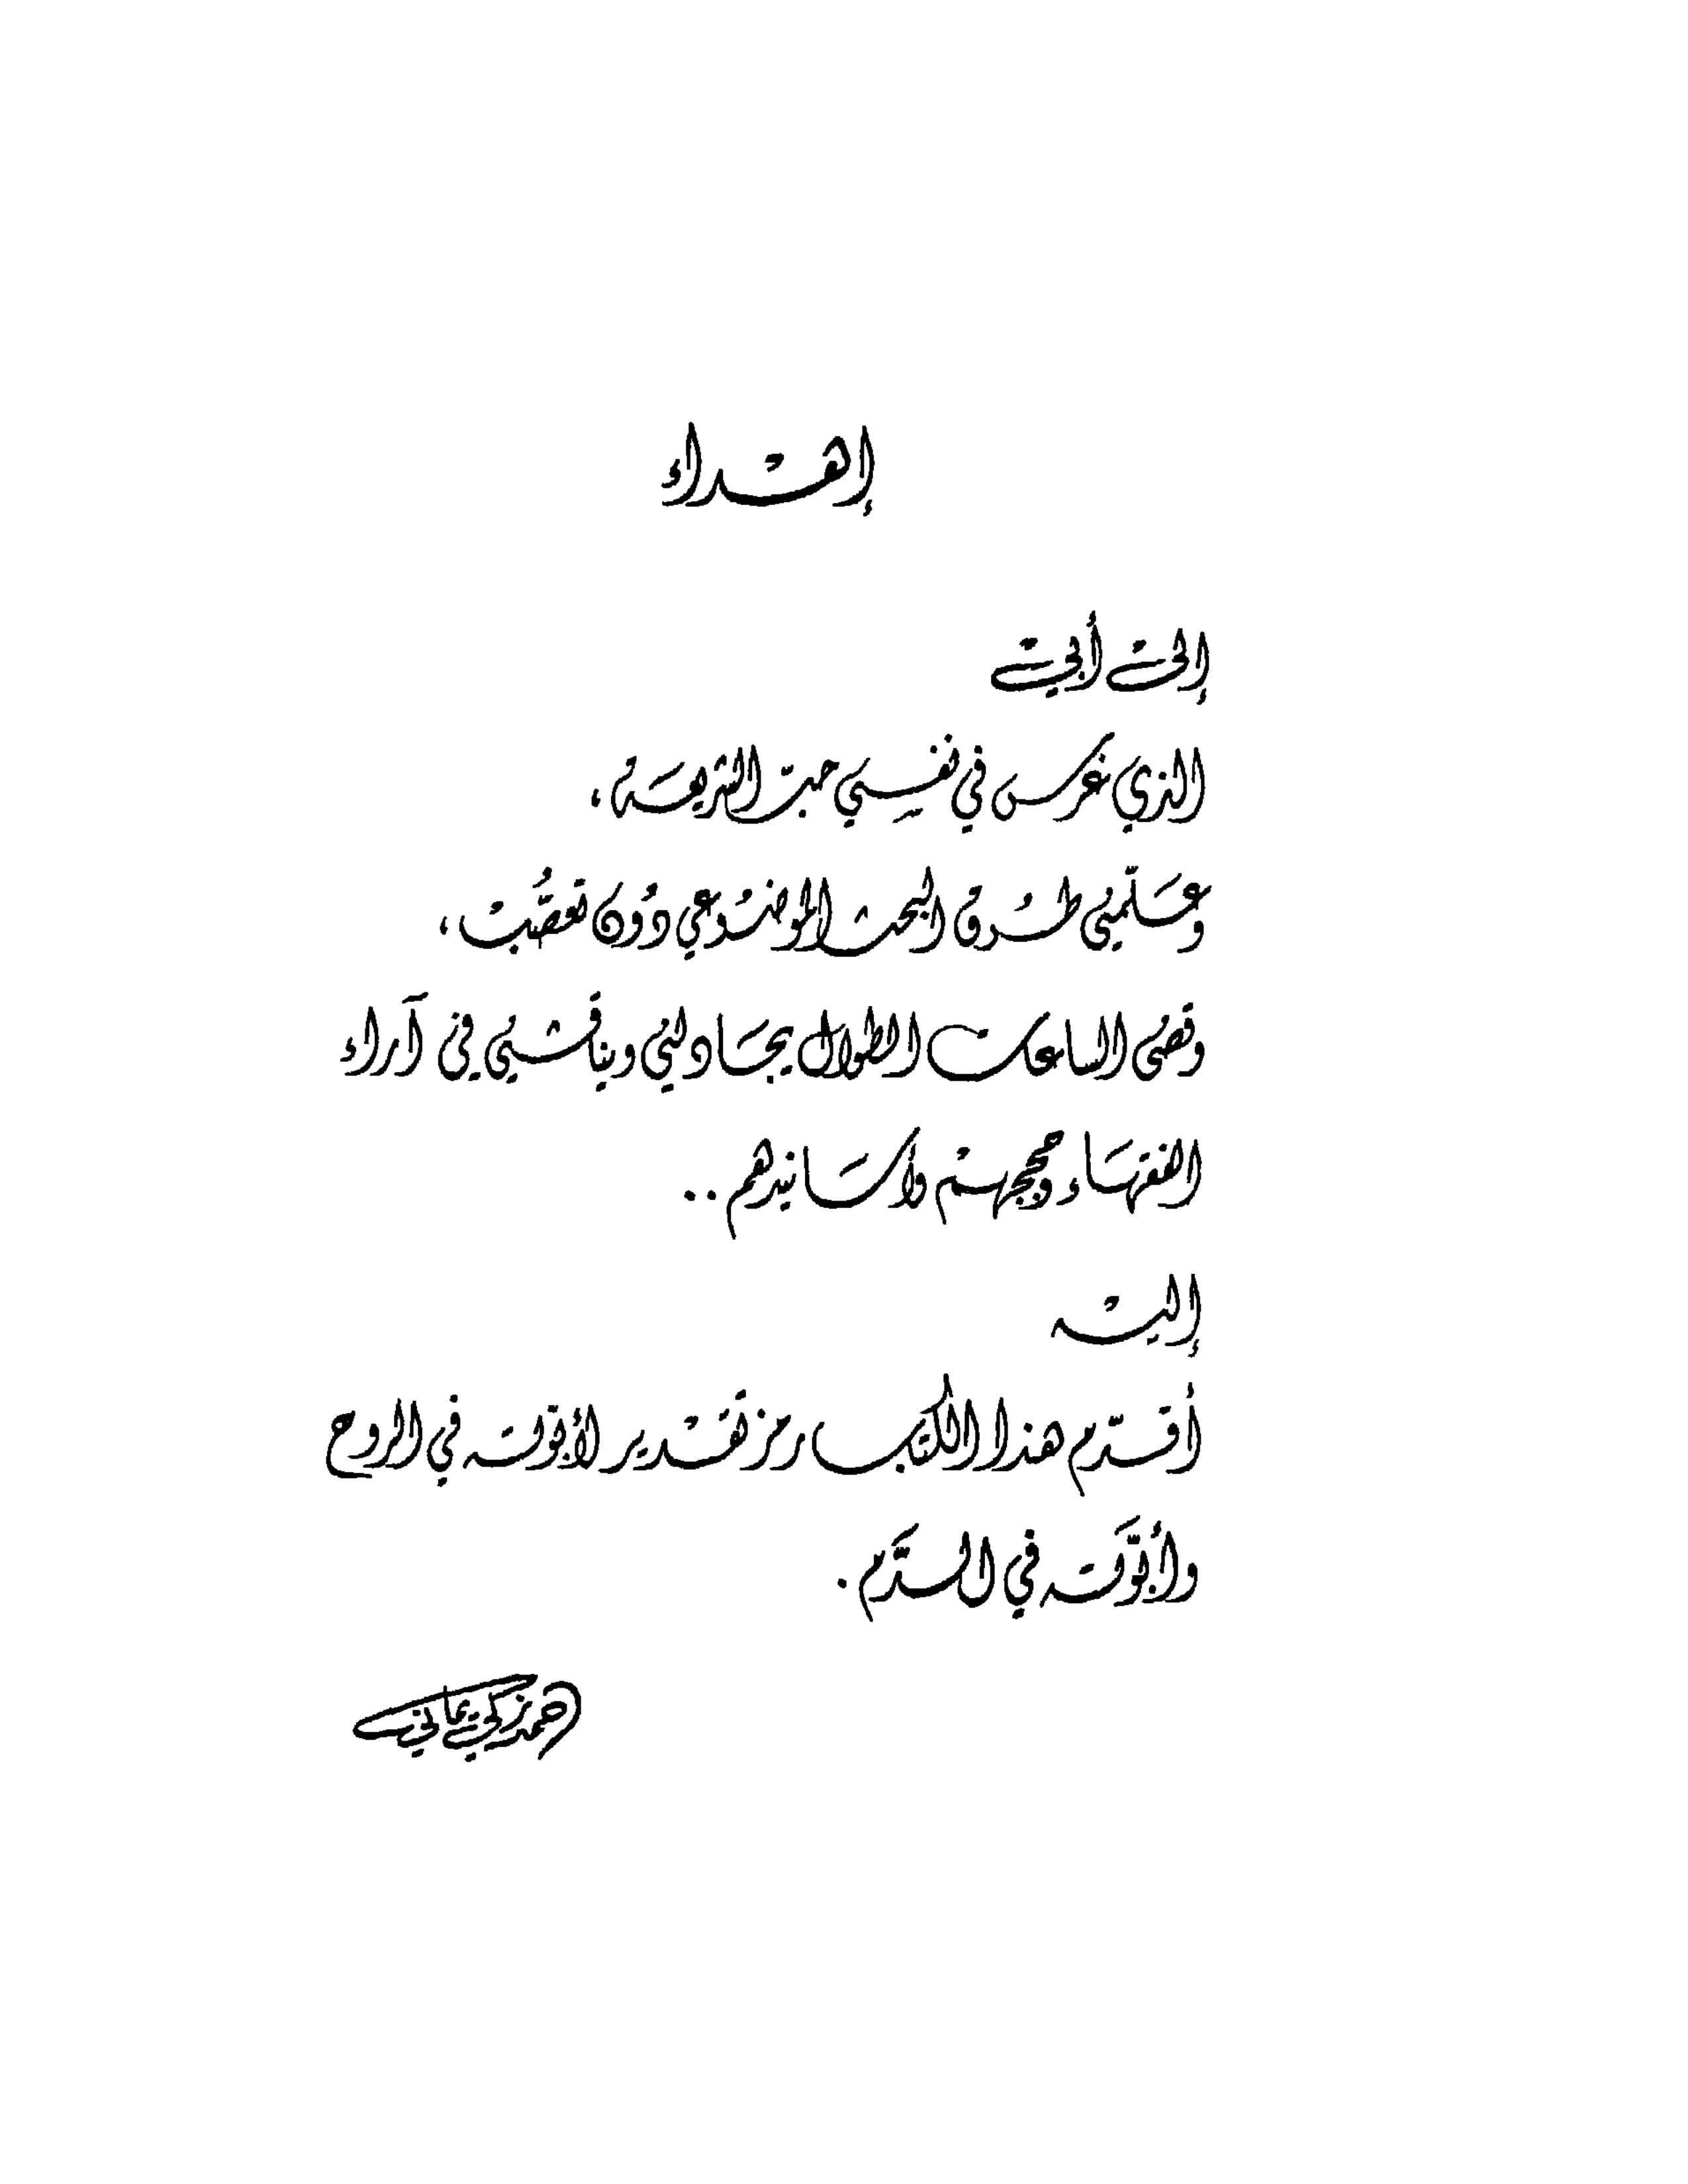 إهداء
إلى أبي
الذي غرس في نفسي حبّ الشريعة ،
وعلّمني طرق البحث الموضوعي دون تعصُّب ،
وقضى الساعات الطوال يجادلني ويناقشني في آراء
الفقهاء وحججهم وأسانيدهم ..
إليه
أقدّم هذا الكتاب رمز تقدير لأبوته في الروح
وأبوَّته في الدَّم .
أحمد زكي يماني